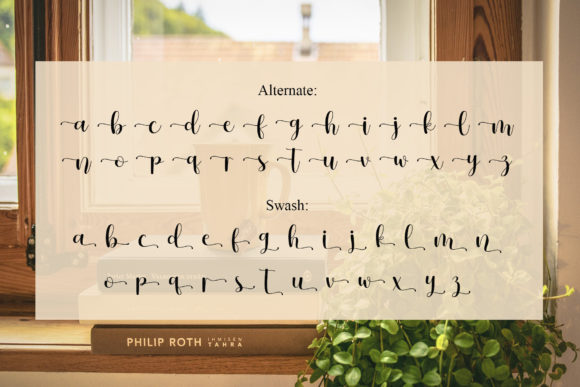 Alternate:
a b c d e f g h i j k l m
n o p q r s t u v w x y z
Swash:
a b c d e f g h i j k l m n
o p q r s t u v w x y z
PHILIP ROTH
IHMISEN
TAHRA